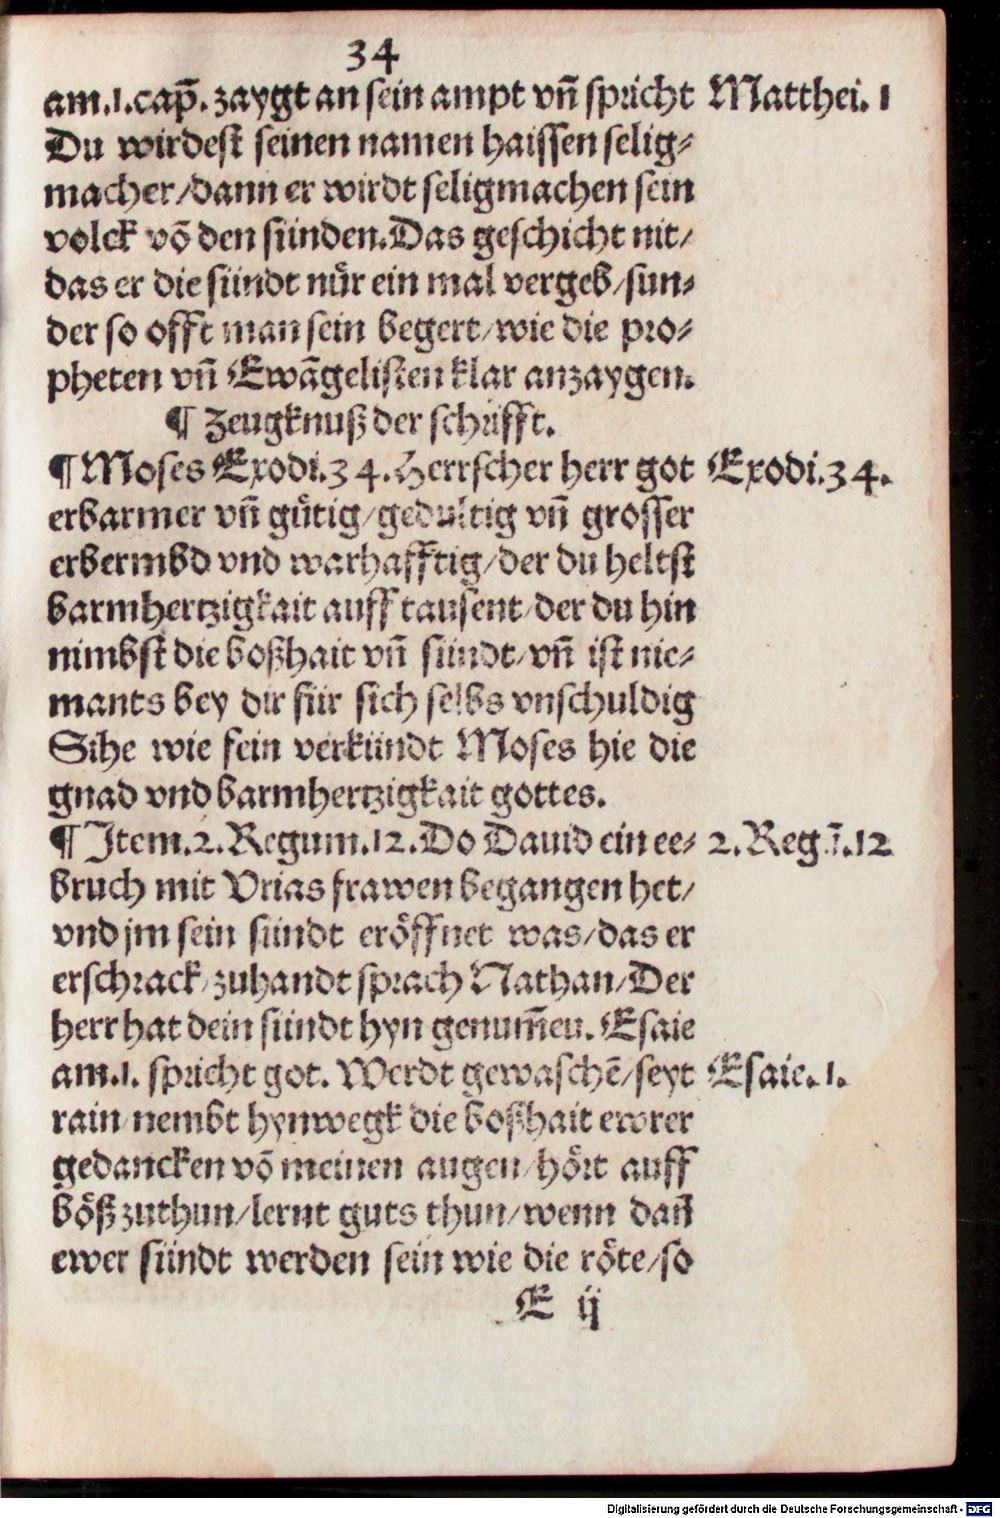 34
am.1.cap̄. zaygt an sein ampt vn̄ spricht Matthei. 1
Du wirdest seinen namen haissen selig⸗
macher/dann er wirdt seligmachen sein
volck vō den sünden.Das geschicht nit/
das er die sündt nůr ein mal vergeb/sun⸗
der so offt man sein begert/wie die pro⸗
pheten vn̄ Ewāgelisten klar anzaygen.
¶ Zeugknuß der schrifft.
¶ Moses Exodi.34.Herrscher herr got Exodi.34.
erbarmer vn̄ gůtig/gedultig vn̄ grosser
erbermbd vnd warhafftig/der du heltst
barmhertzigkait auff tausent/der du hin
nimbst die boßhait vn̄ sündt/vn̄ ist nie⸗
mants bey dir für sich selbs vnschuldig
Sihe wie fein verkündt Moses hie die
gnad vnd barmhertzigkait gottes.
¶ Item.2.Regum.12.Do Dauid ein ee⸗ 2.Reg.ī.12
bruch mit Vrias frawen begangen het/
vnd jm sein sündt eröffnet was/das er
erschrack/zuhandt sprach Nathan/Der
herr hat dein sündt hyn genum̄en. Esaie
am.1. spricht got. Werdt gewaschē/seyt Esaie.1.
rain/nembt hynwegk die boßhait ewrer
gedancken vō meinen augen/hört auff
böß zuthun/lernt guts thun/wenn dan̄
ewer sündt werden sein wie die röte/so
E ij
Digitalisierung gefördert durch die Deutsche Forschungsgemeinschaft - DFG